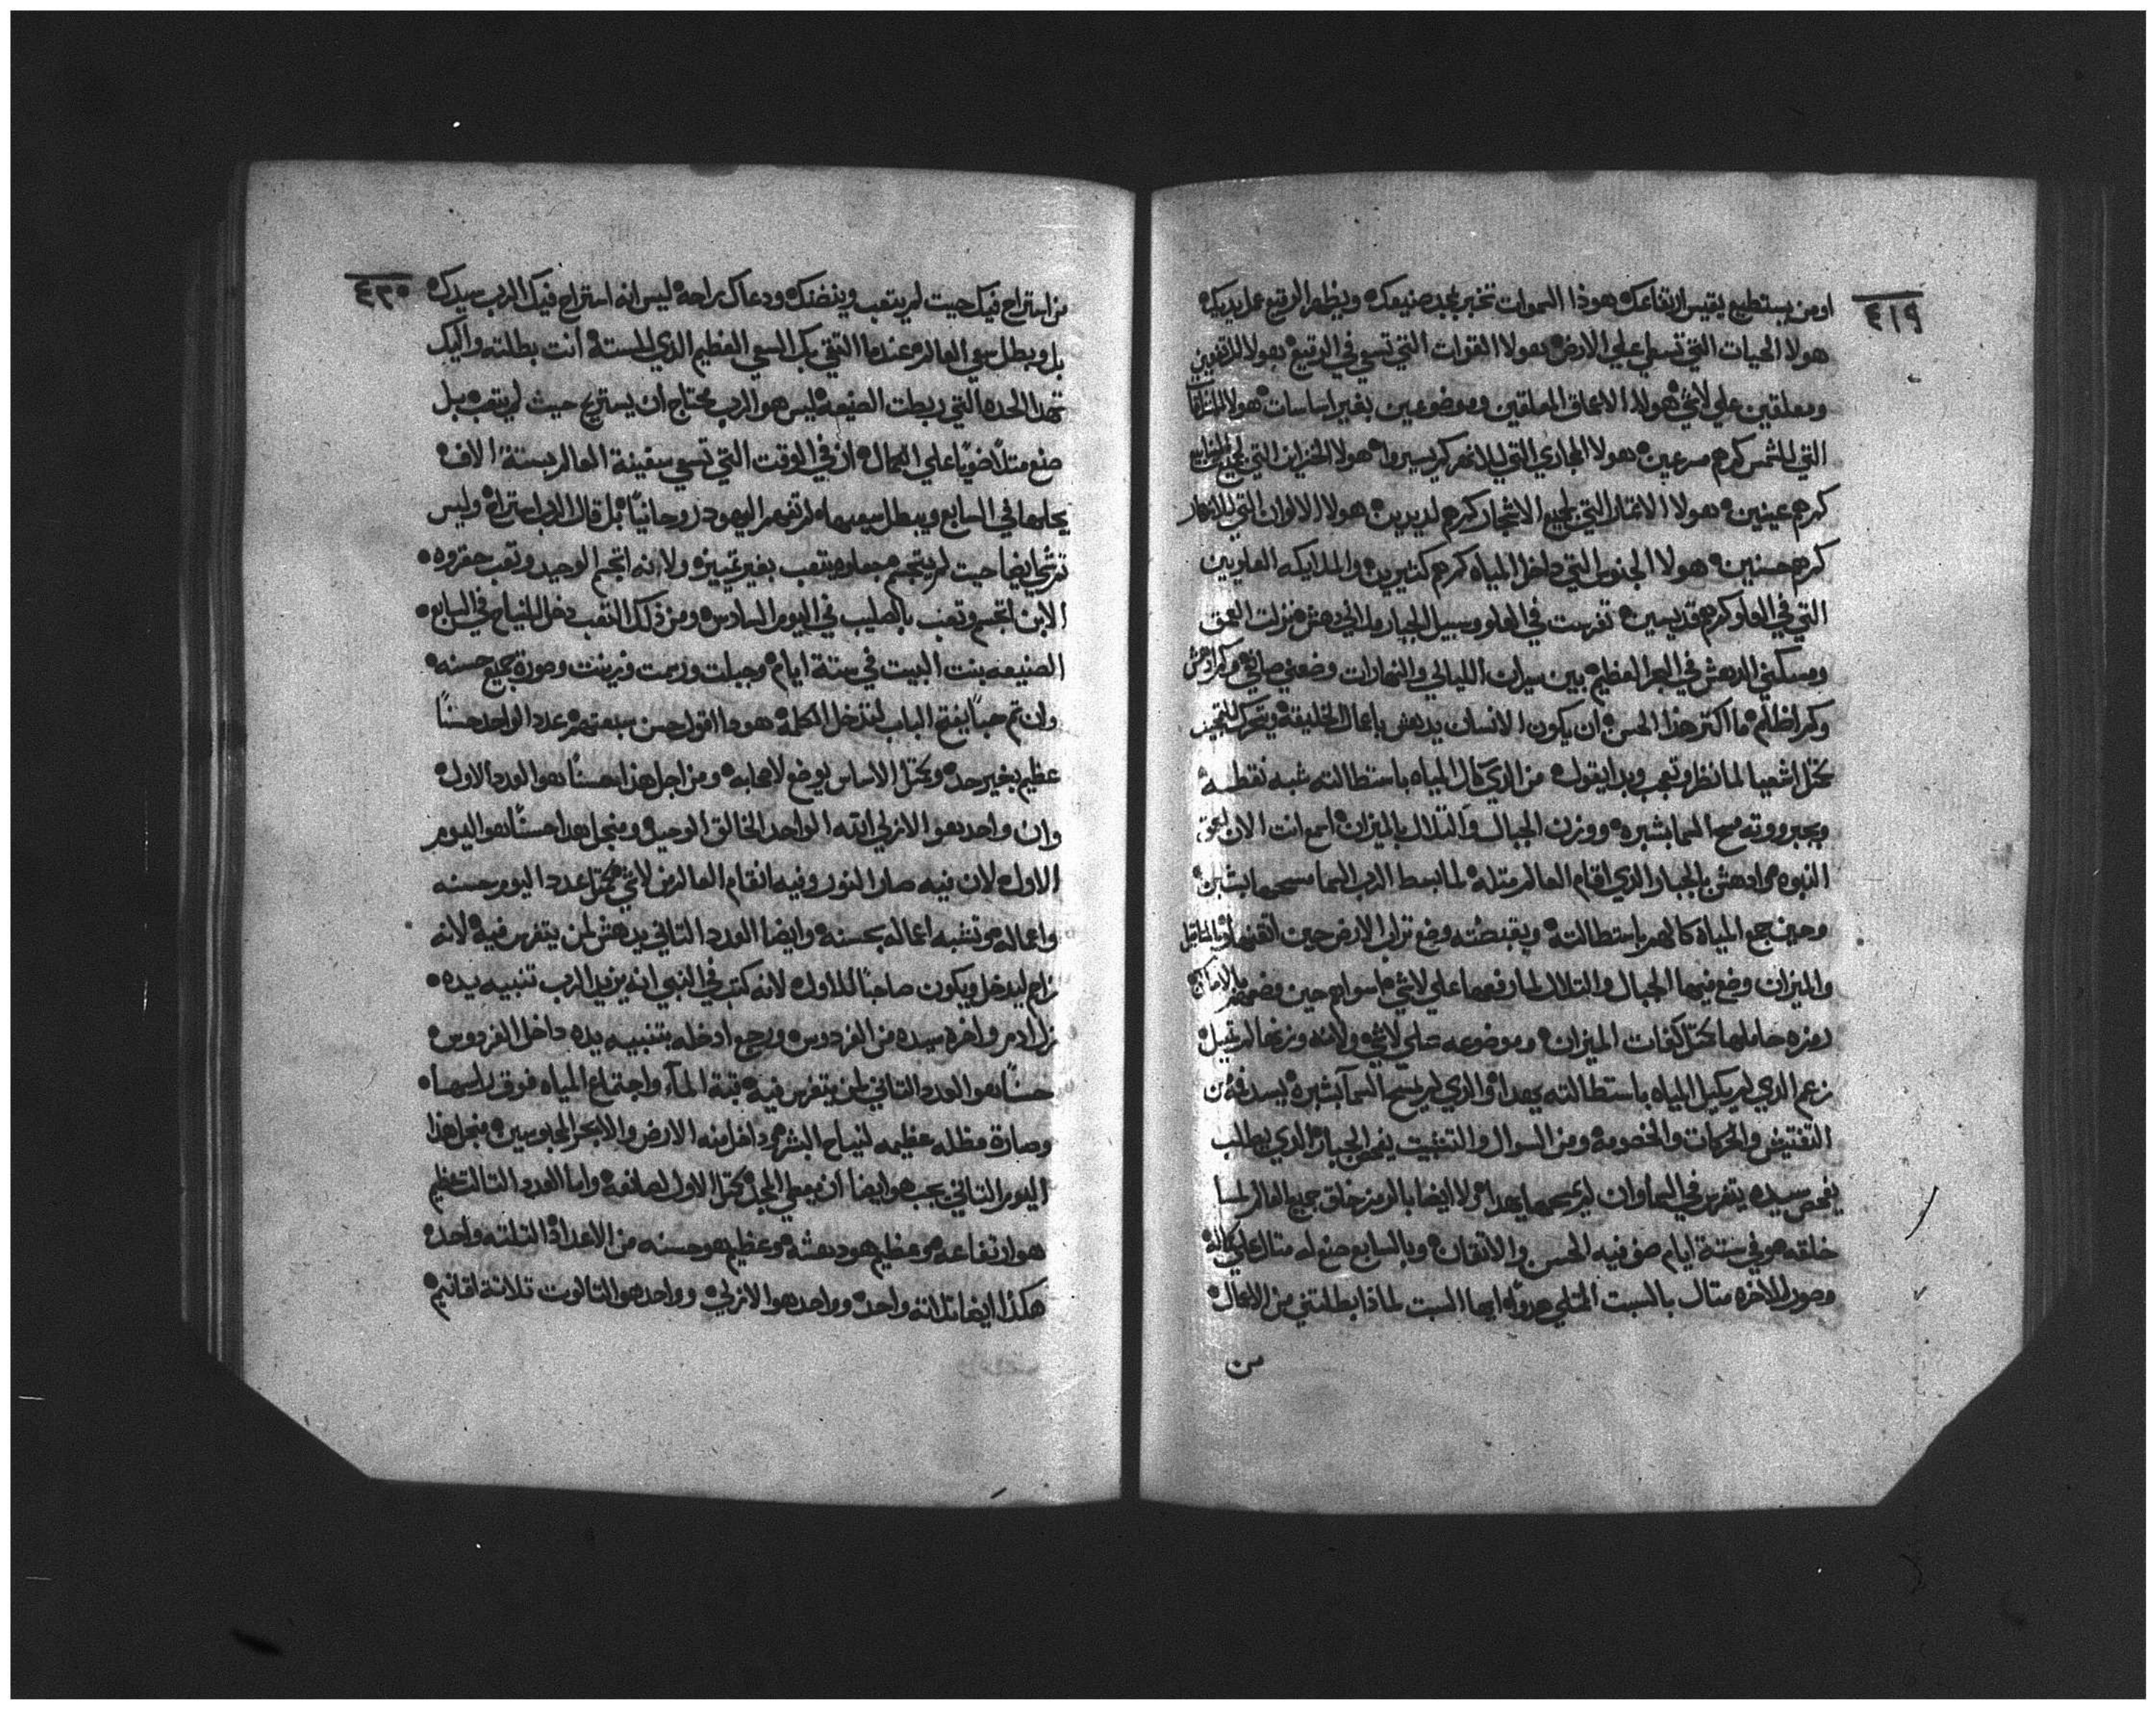 ٤١٩
او من يستطيع يقيس ارتفاعك هوذا السموات تخبر بمجد صنيعك ويظهر الرقيع عمل يديك
هولا الحيات التي تسعي علي الارض هولا القوات التي تسعي في الرقيع هولا
ومعلقين علي لاشي هولا الاعماق المعلقين وموضوعين بغير اساسات هولا
التي للشمس كم هم سرعين هولا المجاري التي للانهر كم يسيروا هولا الخزاين التي
كم هم عينين هولا الاثمار التي لجميع الاشجار كم هم لديدين هولا الالوان التي للازهار
كم هم حسنين هولا الجنوس التي داخل المياه كم هم كتيرين والملايكه العلويين
التي في العلو كم هم قديسين تفرست في العلو وسبيل الجبار ملاني دهش نزلت العمق
ومسكني الدهش في البحر العظيم بين سيران الليالي والنهارات وضعني صانعي
وكم اظلم ما اكتر هذا الحسن ان يكون الانسان يدهش باعمال الخليقة ويتحرك للتعجب
كمتل اشعيا لما نظر وتعجب وبدا يقول من الذي كال المياه باستطالته شبه نقطه
وبجبرووته مسح السما بشبره ووزن الجبال والتلال بالميزان اسمع انت الان
النبوه وادهش بالجبار الذي اقام العالم مثله لما بسط الرب السما مسحها بشبره
وحين جمع المياه كالهم باستطالته وبقبضته وضع تراب الارض حين اتقنها
والميزان وضع فيها الجبال والتلال لما رفعها علي لاشي
رمزه حاملها كمتل كفات الميزان وموضوعه علي لاشي ولانه وزنها لم تميل
زعم الذي لم يكيل المياه باستطالته يهدا والذي لم يمسح السما بشبره يسد فمه من
التفتيش والحركات والخصومه ومن السوال والتثبيت يفحص الجبار الذي يطلب
يفحص سيده يتفرس في السما وان لم يمسحها يهدا ولا ايضا بالرمز خلق جميع العالم لما
خلقه هو في ستة ايام صف فيه الحسن والاتقان وبالسابع صنع له متال علي كماله
وصور للاخره متال بالسبت المتلي هدوا ايها السبت لماذا ابطلتني من الاعمال
من
٤٢٠
من استراح فيك حيت لم يتعب وينضنك ودعاك براحه ليس انه استراح فيك الرب سيدك
بل وبطل سعي العالم عندما التقي بك السعي العظيم الذي للستة انت بطلته واليك
تهدا الحده التي ربطت الصنيعه ليس هو الرب محتاج ان يستريح حيث لم يتعب بل
صنع متلاً ضوياً علي الكمال ان في الوقت التي تسعي سفينة العالم بستة الاف
يحلها في السابع ويبطل سعيها لم تفهم اليهود روحانياً بل قال الرب استراح وليس
تري ايضا حيت لم يتجسم يتعب بغير تمييز ولا انه اتجسم الوحيد وتعب حقروه
الابن اتجسم وتعب بالصليب في اليوم السادس ومن ذلك التعب دخل للنياح في السابع
الصنيعه بنت البيت في ستة ايام وجبلت ورسمت وزينت وصورة جميع حسنه
وان تم حباً يفتح الباب لتدخل الكلمة هودا اقول حسن سبعتهم عدد الواحد حسناً
عظيم بغير حد وكمتل الاساس يوضع لاصحابه ومن اجل هذا حسناً هو العدد الاول
وان واحد هو الازلي انه الواحد الخالق الوحيد ومنجل هدا حسناً هو اليوم
الاول لان فيه صار النور وفيه انقام العالم من لاشي كمتل عدد اليوم حسنه
واعماله هو تشبه اعماله بحسنه وايضا العدد التاني يدهش لمن يتفرس فيه لانه
زام ليدخل ويكون صاحباً للاول لانه كتب في النبي انه يزيد الرب تتنيه يده
نزل ادم واخره سيده من الفردوس ورجع ادخله بتتنيه يده داخل الفردوس
حسناً هو العدد التاني لمن يتفرس فيه قبة المآء واجتماع المياه فوق راسها
وصارة مظله عظيمه لنياح البشر وداخل منه الارض والابحر المحبوسين منجل هذا
اليوم التاني يجب هو ايضا ان يعطي المجد كمتل الاول لصانعه واما العدد التالت عظيم
هو ارتفاعه وعظيم هو دهشه وعظيم هو حسنه من الاعداد التلته واحده
هكذا ايضا تلاته واحد وواحد هو الازلي وواحد هو التالوت تلاتة اقانيم